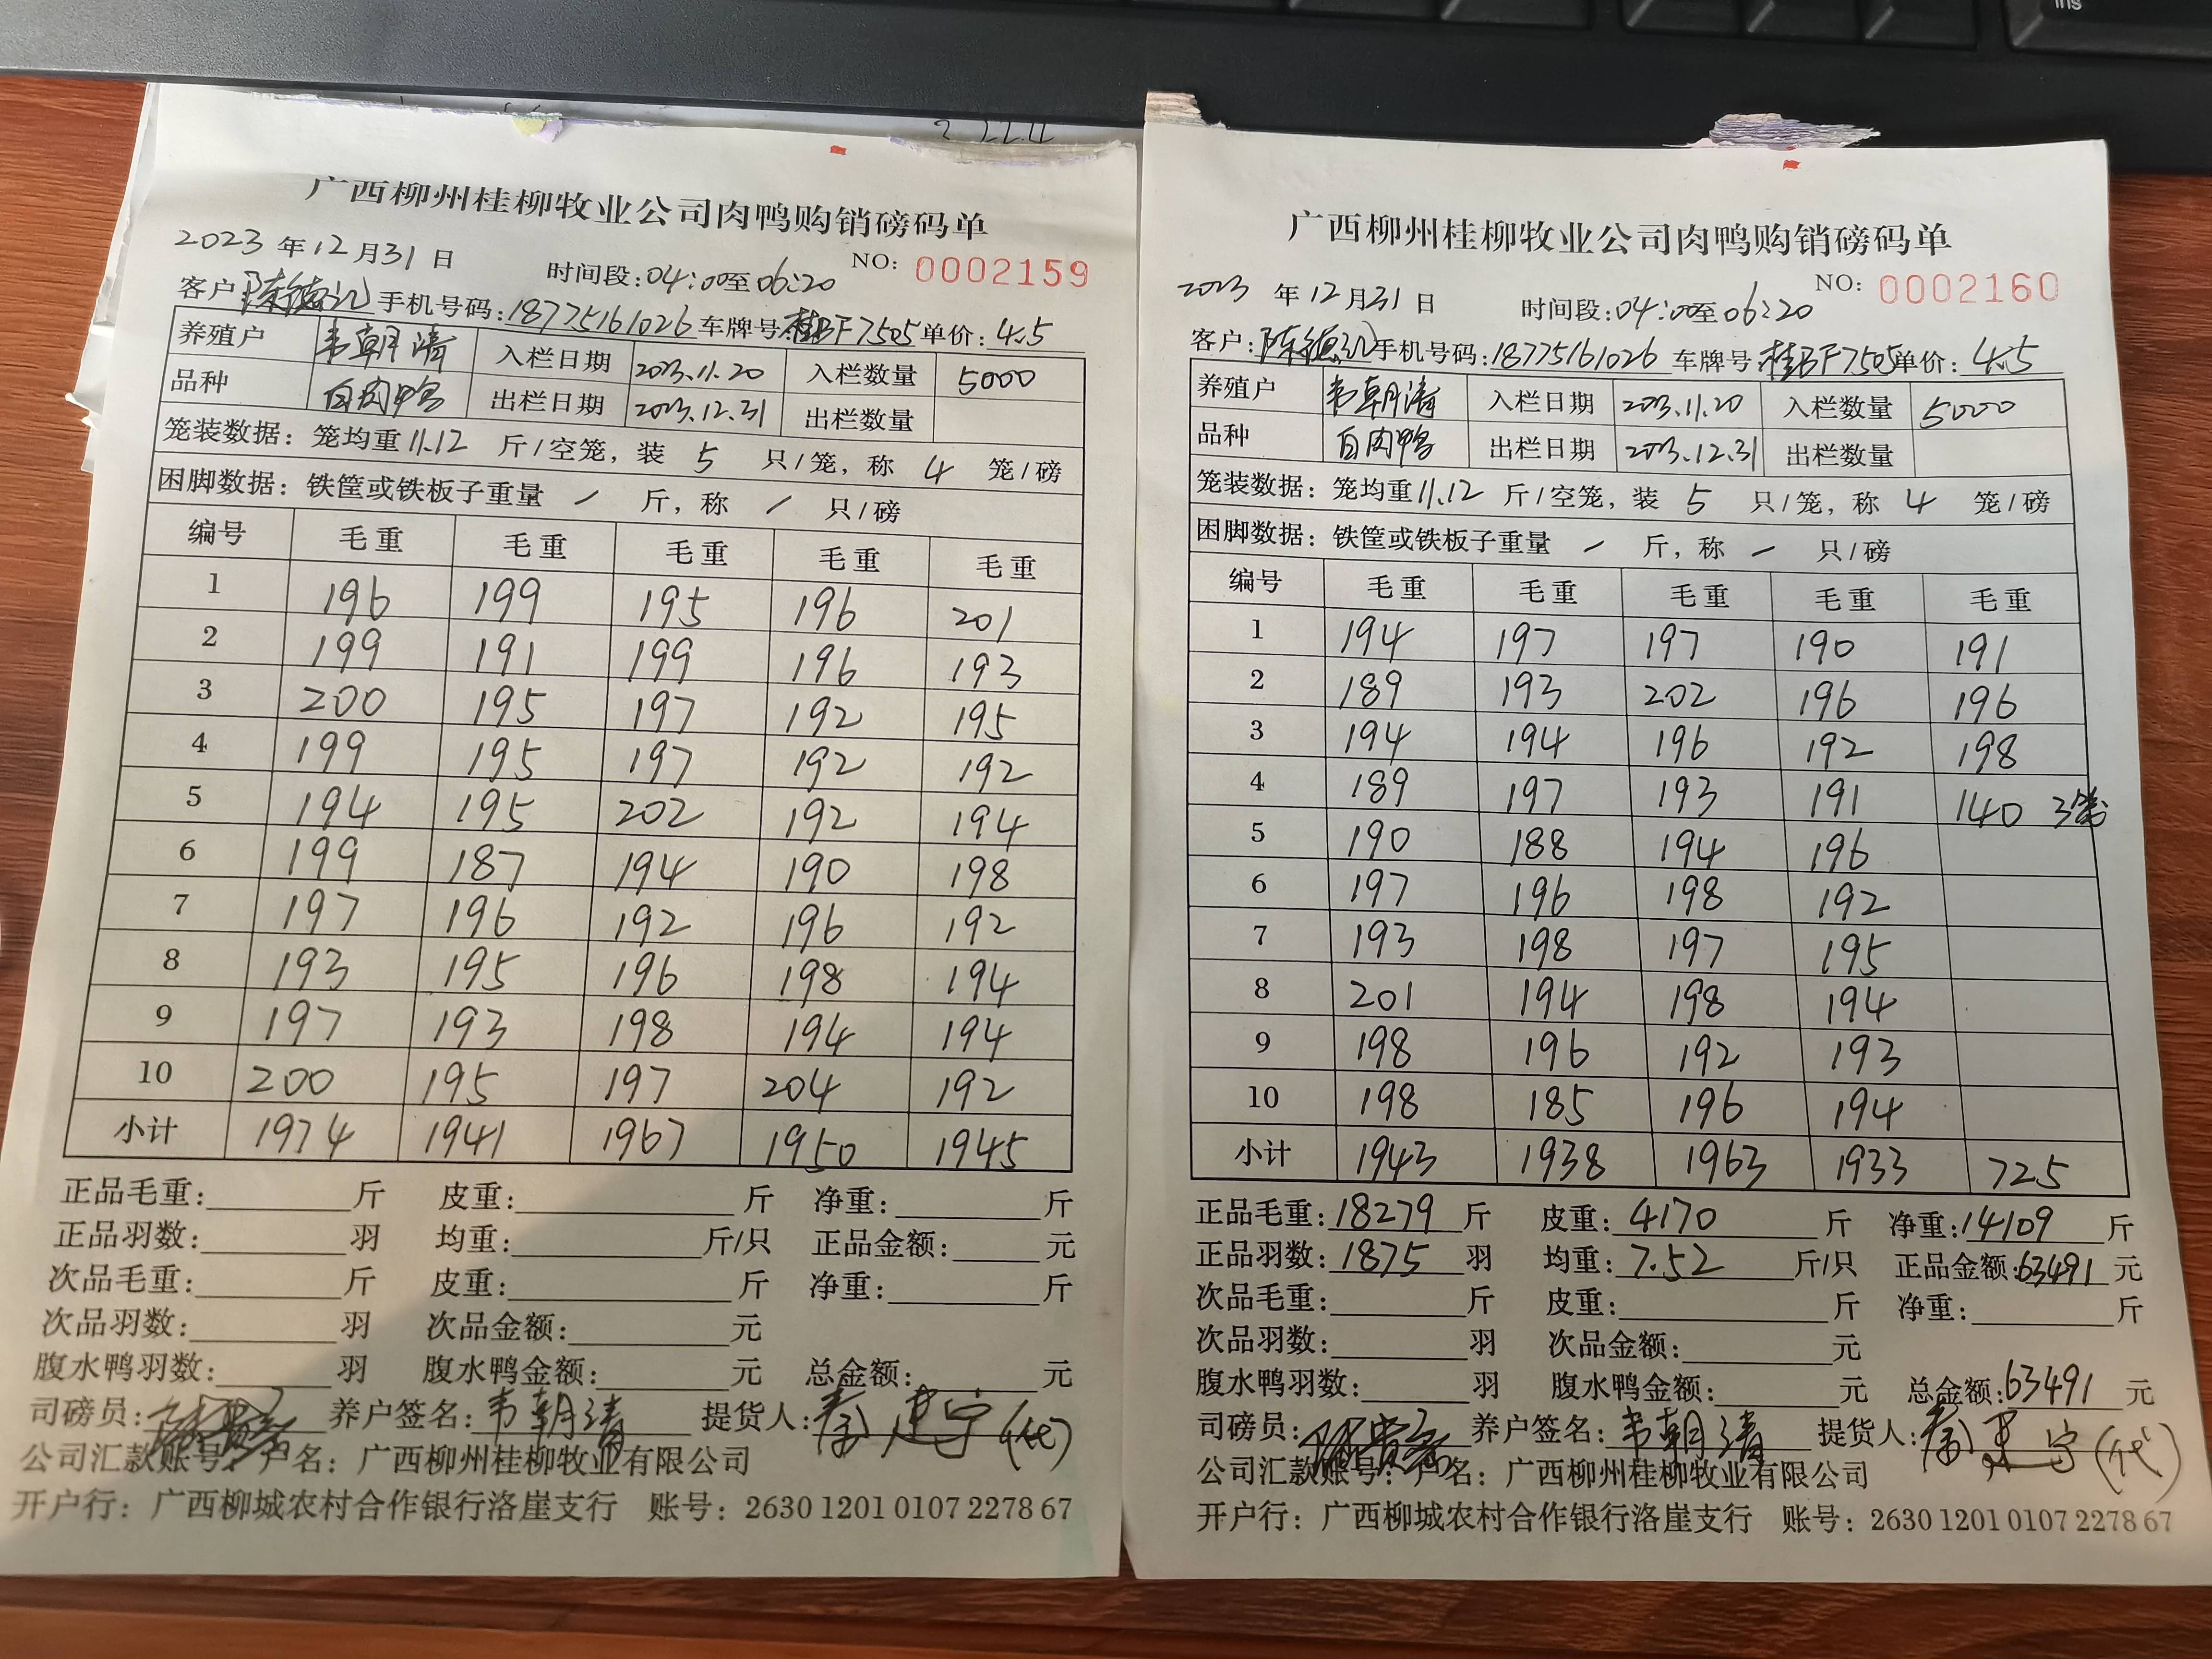 广西柳州桂柳牧业公司肉鸭购销磅码单
2023年12月31日 时间段:04:00至06:20 NO: 0002159
客户 手机号码:18775161026 车牌号:桂BF7505 单价:4.5
养殖户 韦朝清 入栏日期 2023.11.20 入栏数量 5000
品种 白肉鸭 出栏日期 2023.12.31 出栏数量
笼装数据: 笼均重11.12 斤/空笼, 装 5 只/笼, 称 4 笼/磅
困脚数据: 铁筐或铁板子重量 / 斤, 称 / 只/磅
编号 毛重 毛重 毛重 毛重 毛重
1 196 199 195 196 201
2 199 191 199 196 193
3 200 195 197 192 195
4 199 195 197 192 192
5 194 195 202 192 194
6 199 187 194 190 198
7 197 196 192 196 192
8 193 195 196 198 194
9 197 193 198 194 194
10 200 195 197 204 192
小计 1974 1941 1967 1950 1945
正品毛重: 斤 皮重: 斤 净重: 斤
正品羽数: 羽 均重: 斤/只 正品金额: 元
次品毛重: 斤 皮重: 斤 净重: 斤
次品羽数: 羽 次品金额: 元
腹水鸭羽数: 羽 腹水鸭金额: 元 总金额: 元
司磅员: 养户签名: 韦朝清 提货人: 秦建宁(代)
公司汇款账号: 户名: 广西柳州桂柳牧业有限公司
开户行: 广西柳城农村合作银行洛崖支行 账号: 2630 1201 0107 2278 67
广西柳州桂柳牧业公司肉鸭购销磅码单
2023 年12月31日 时间段:04:00至06:20 NO: 0002160
客户: 手机号码:18775161026 车牌号:桂BF7505 单价:4.5
养殖户 韦朝清 入栏日期 2023.11.20 入栏数量 5000
品种 白肉鸭 出栏日期 2023.12.31 出栏数量
笼装数据: 笼均重11.12 斤/空笼, 装 5 只/笼, 称 4 笼/磅
困脚数据: 铁筐或铁板子重量 / 斤, 称 / 只/磅
编号 毛重 毛重 毛重 毛重 毛重
1 194 197 197 190 191
2 189 193 202 196 196
3 194 194 196 192 198
4 189 197 193 191 140 3笼
5 190 188 194 196
6 197 196 198 192
7 193 198 197 195
8 201 194 198 194
9 198 196 192 193
10 198 185 196 194
小计 1943 1938 1963 1933 725
正品毛重: 18279 斤 皮重: 4170 斤 净重: 14109 斤
正品羽数: 1875 羽 均重: 7.52 斤/只 正品金额: 63491 元
次品毛重: 斤 皮重: 斤 净重: 斤
次品羽数: 羽 次品金额: 元
腹水鸭羽数: 羽 腹水鸭金额: 元 总金额: 63491 元
司磅员: 养户签名: 韦朝清 提货人: 秦建宁(代)
公司汇款账号: 户名: 广西柳州桂柳牧业有限公司
开户行: 广西柳城农村合作银行洛崖支行 账号: 2630 1201 0107 2278 67